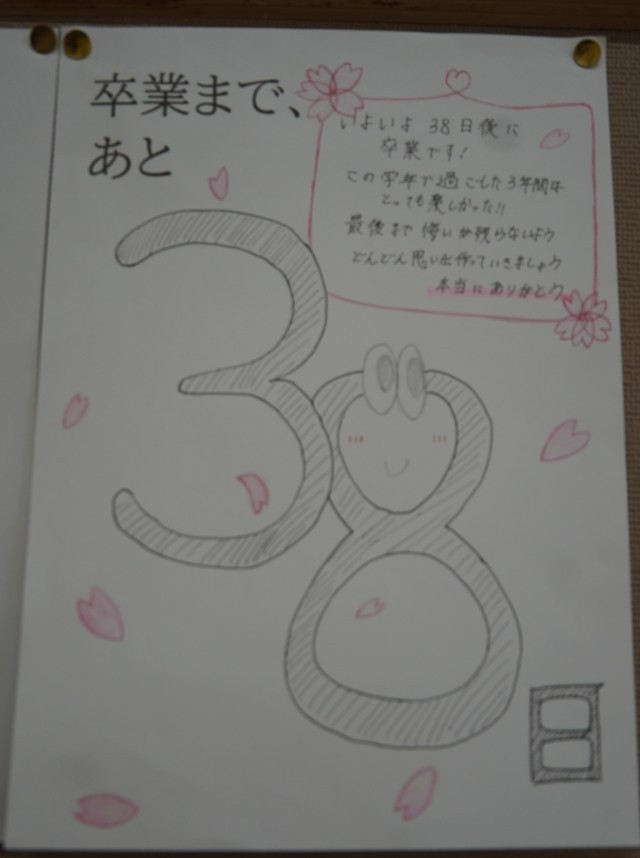 卒業まで、
あと
いよいよ 38日後に
卒業です!
この学年で過ごした3年間は
とっても楽しかった!!
最後まで 悔いが残らないよう
どんどん思い出作っていきましょう
本当にありがとう
38
日